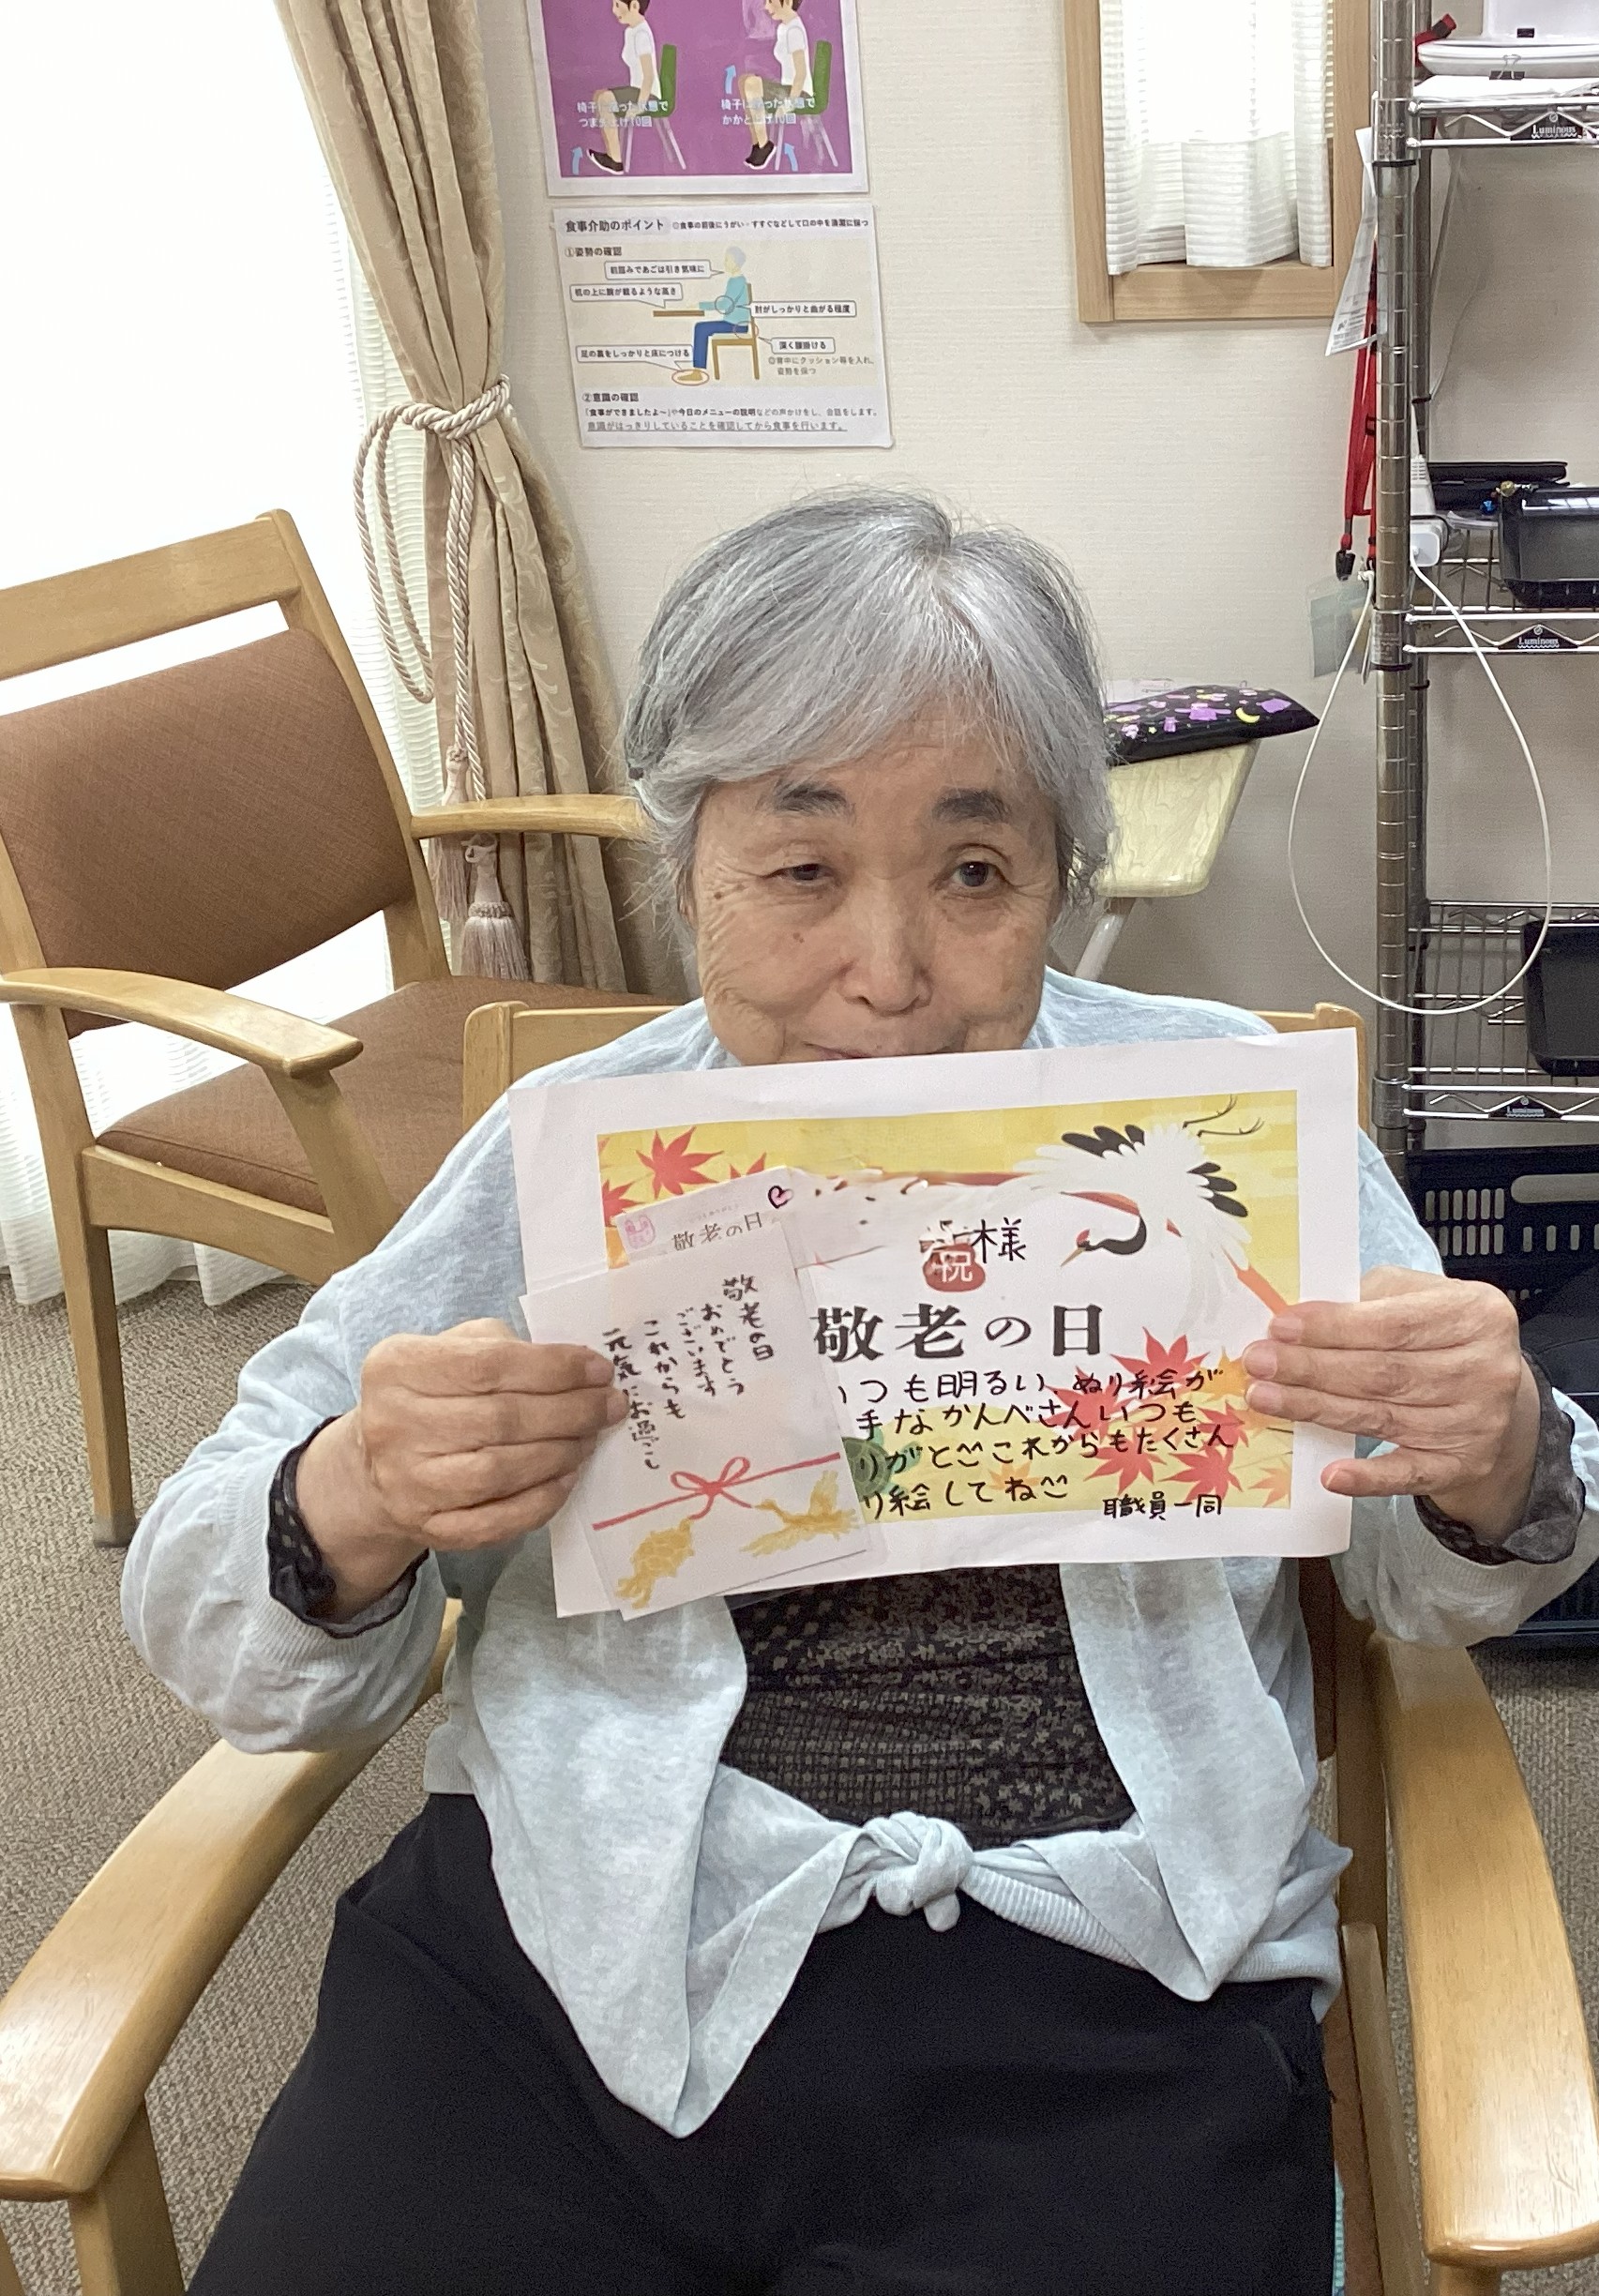 椅子に座った状態で
つま先上げ10回
椅子に座った状態で
かかと上げ10回
食事介助のポイント
◎食事の前後にうがい・すすぐなどして口の中を清潔に保つ
①姿勢の確認
前屈みであごは引き気味に
机の上に腕が載るような高さ
肘がしっかりと曲がる程度
深く腰掛ける
足の裏をしっかりと床につける
◎背中にクッション等を入れ、
姿勢を保つ
②意識の確認
「食事ができましたよ～」や今日のメニューの説明などの声かけをし、会話をします。
意識がはっきりしていることを確認してから食事を行います。
Luminous
Luminous
Luminous
様
祝
敬老の日
いつも明るい、ぬり絵が
手なかんべさんいつも
りがと これからもたくさん
り絵してね
職員一同
敬老の日
敬老の日
おめでとう
ございます
これからも
元気にお過ごし